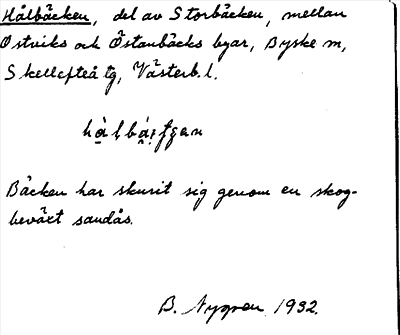 Hålbäcken, del av Storbäcken, mellan
Östviks och Östanbäcks byar, Byske sn,
Skellefteå tg, Västerb. l.
Bäcken har skurit sig genom en skog-
beväxt sandås.
B. Nygren 1932.